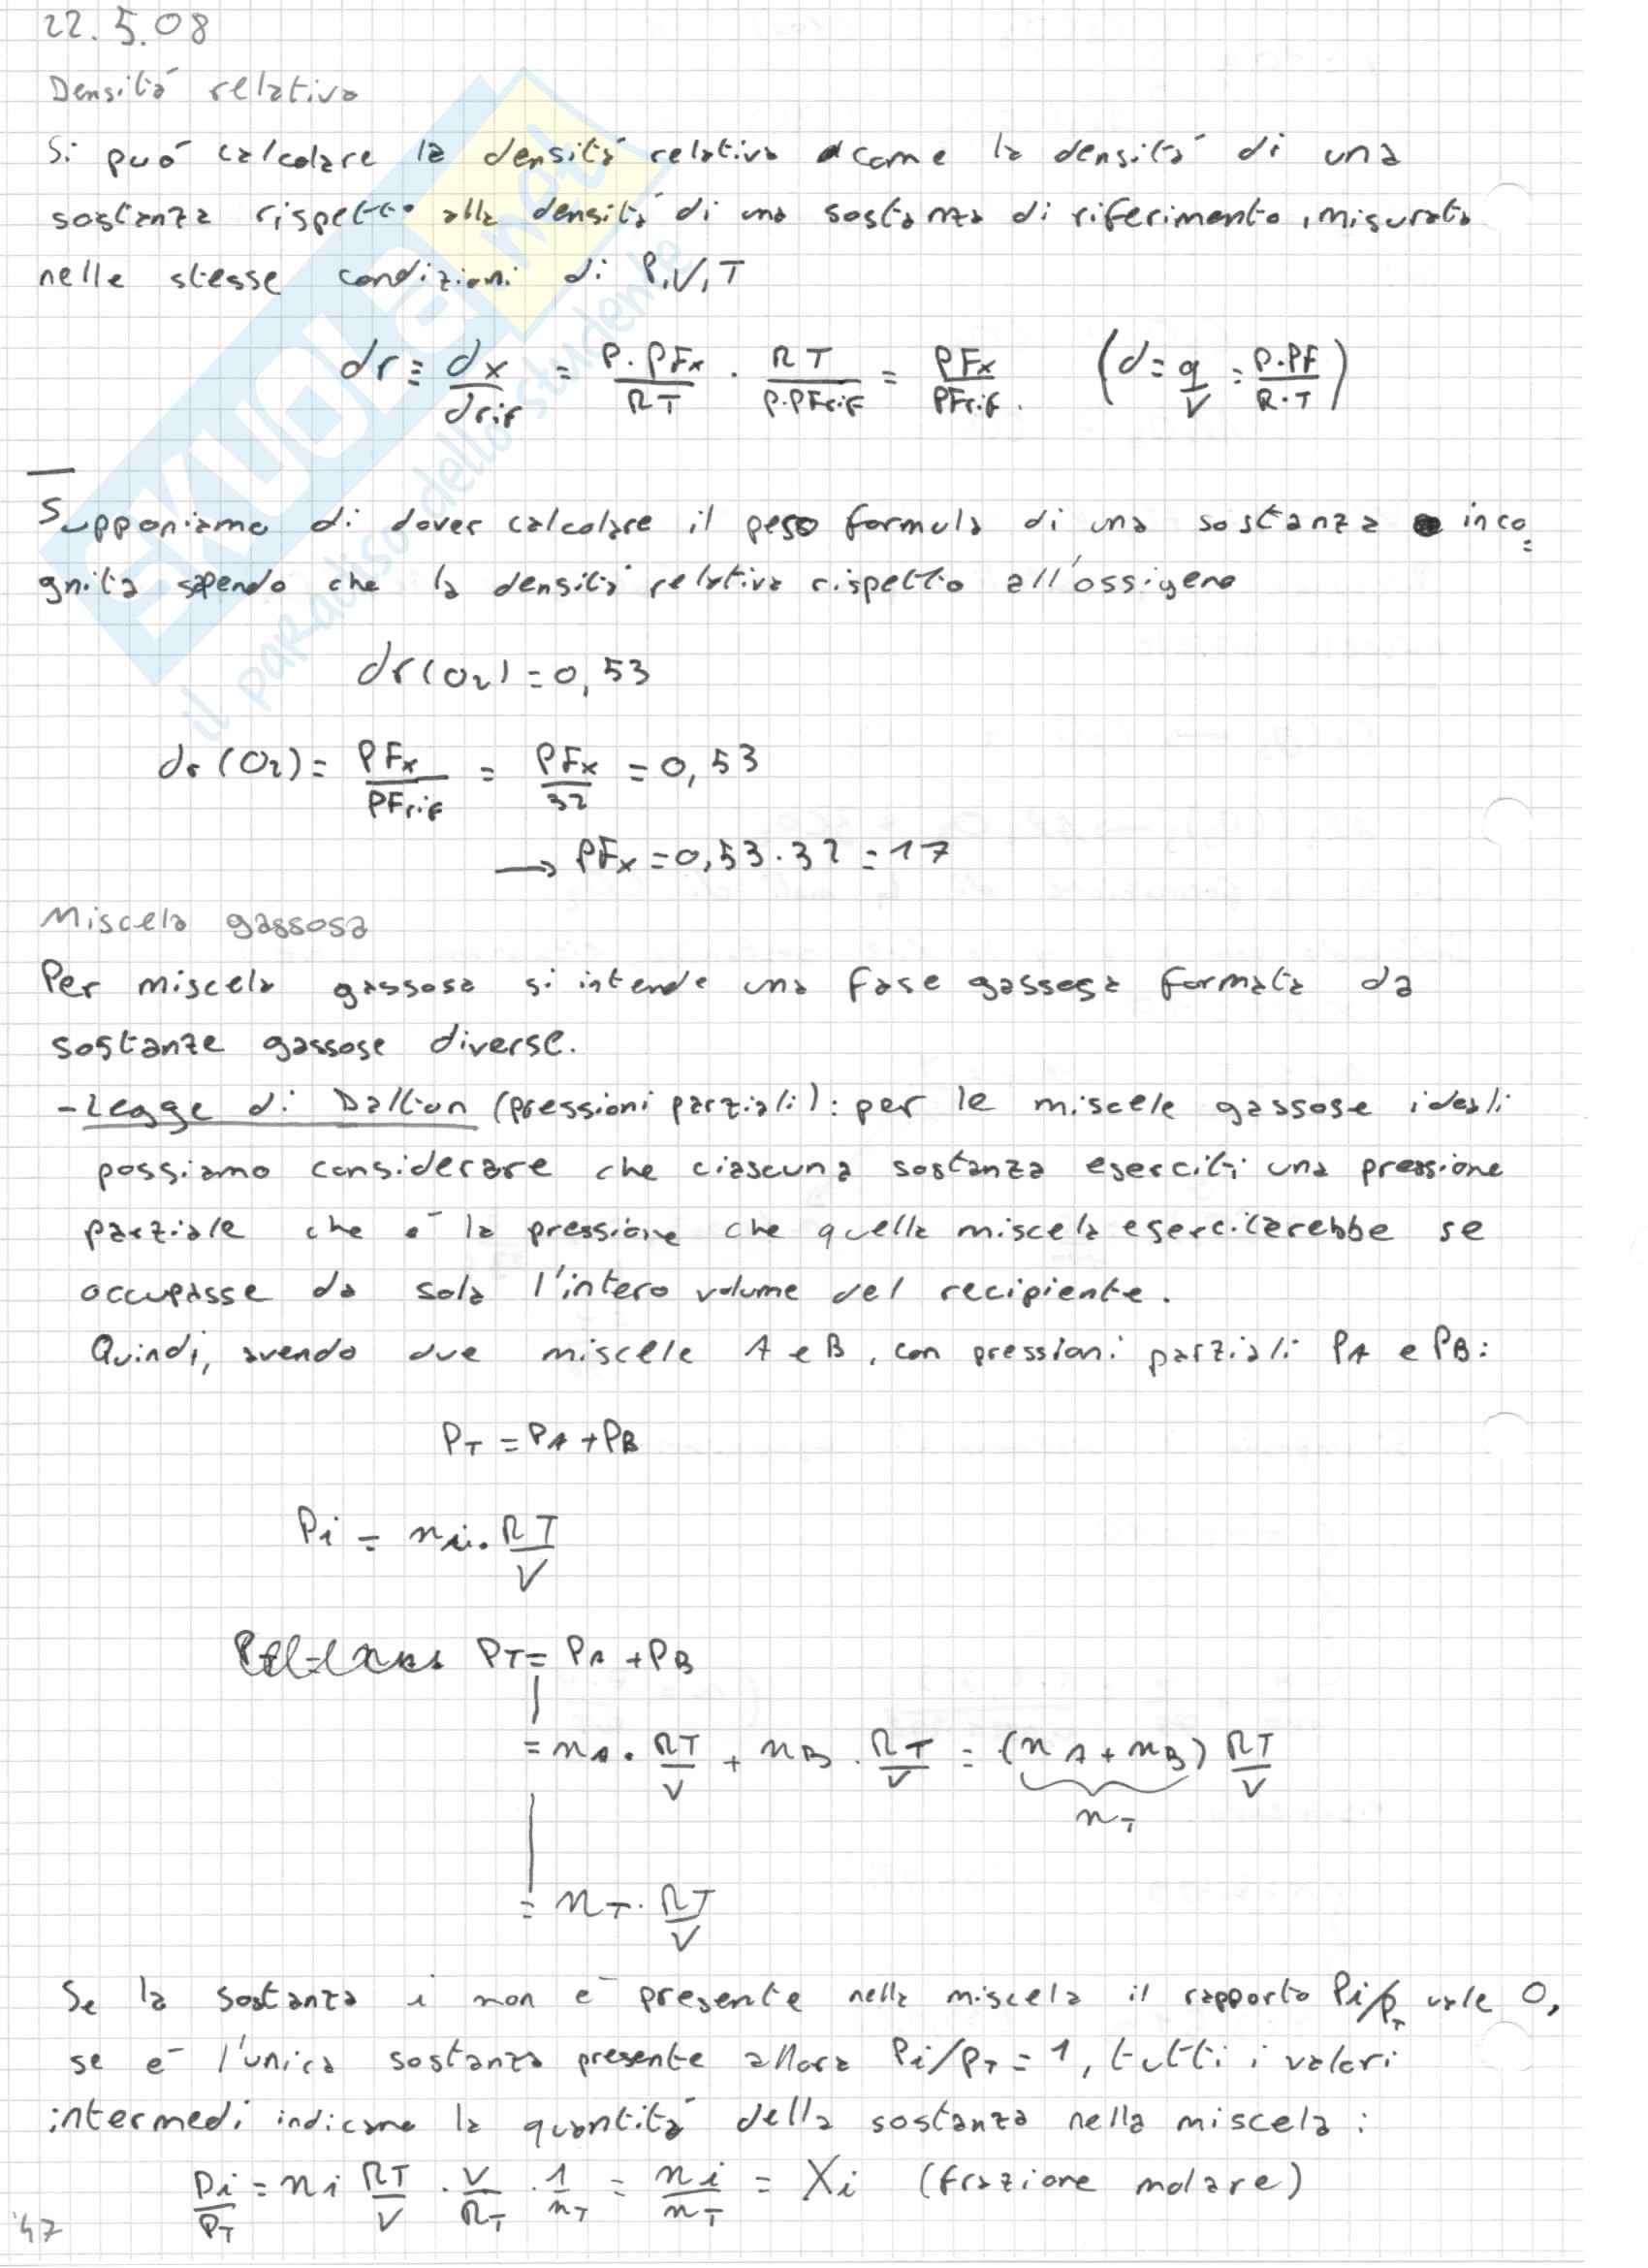 22.5.08
Densità relativa
Si può calcolare la densità relativa come la densità di una
sostanza rispetto alla densità di una sostanza di riferimento, misurata
nelle stesse condizioni di P,V,T
dr = dx/drif = P·PFx/RT · RT/P·PFrif = PFx/PFrif. (d = g/V = P·PF/R·T)
Supponiamo di dover calcolare il peso formula di una sostanza inco=
gnita sapendo che la densità relativa rispetto all'ossigeno
dr(O2) = 0,53
dr(O2) = PFx/PFrif = PFx/32 = 0,53
→ PFx = 0,53·32 = 17
Miscela gassosa
Per miscela gassosa si intende una fase gassosa formata da
sostanze gassose diverse.
- Legge di Dalton (pressioni parziali): per le miscele gassose ideali
possiamo considerare che ciascuna sostanza eserciti una pressione
parziale che è la pressione che quella miscela eserciterebbe se
occupasse da sola l'intero volume del recipiente.
Quindi, avendo due miscele A e B, con pressioni parziali PA e PB:
PT = PA + PB
Pi = ni · RT/V
PT = PA + PB
= nA · RT/V + nB · RT/V = (nA + nB) RT/V
nT
= nT · RT/V
Se la sostanza i non è presente nella miscela il rapporto Pi/PT vale 0,
se è l'unica sostanza presente allora Pi/PT = 1, tutti i valori
intermedi indicano la quantità della sostanza nella miscela:
Pi/PT = ni RT/V · V/RT · 1/nT = ni/nT = Xi (frazione molare)
47
SKUOLA.net
il paradiso dello studente